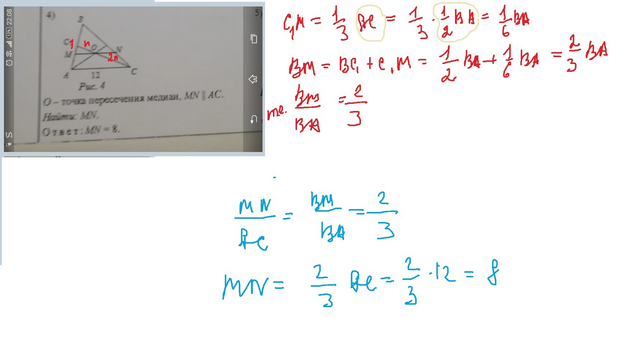 4)
5)
B
C₁ 1 n O N
M 2n
A 12 C
Рис. 4
O – точка пересечения медиан, MN ∥ AC.
Найти: MN.
Ответ: MN = 8.
C₁M = 1/3 AC₁ = 1/3 · 1/2 BA = 1/6 BA
BM = BC₁ + C₁M = 1/2 BA + 1/6 BA = 2/3 BA
т.е. BM/BA = 2/3
MN/AC = BM/BA = 2/3
MN = 2/3 AC = 2/3 · 12 = 8